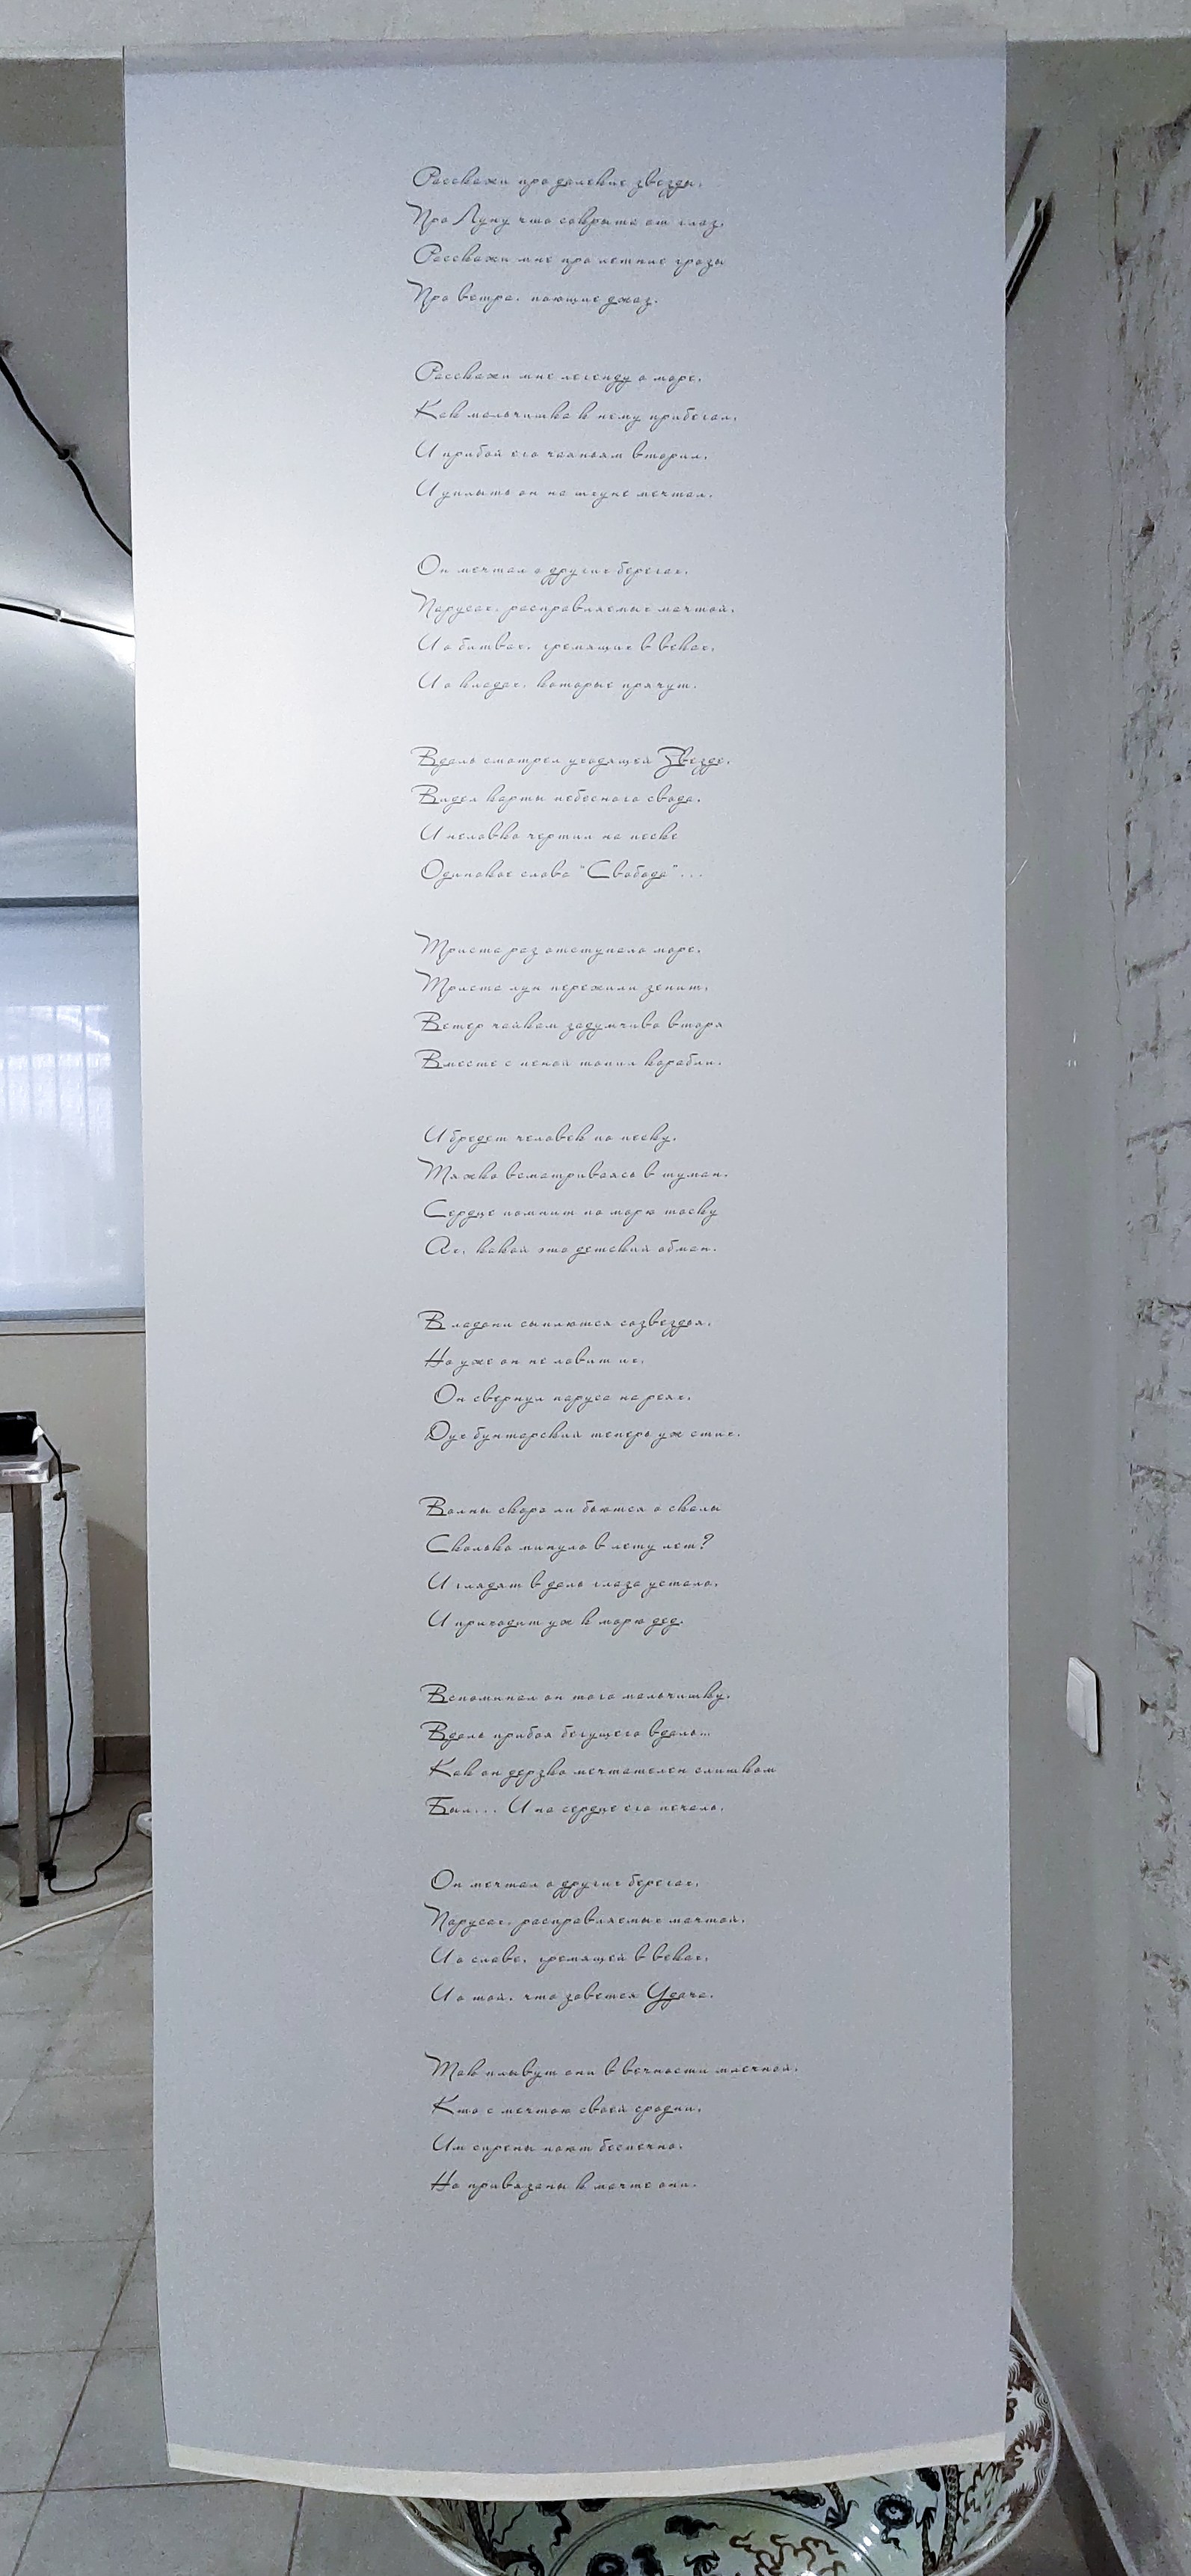 Расскажи про далекие звезды,
Про Луну что сокрыта от глаз,
Расскажи мне про летние грозы
Про ветра, поющие джаз.
Расскажи мне легенду о море,
Как мальчишка к нему прибегал,
И прибой его чаяньям вторил,
И уплыть он на шхуне мечтал.
Он мечтал о других берегах,
Парусах, расправляемых мачтой,
И о битвах, гремящих в веках,
И о кладах, которые прячут.
Вдаль смотрел уходящей Звезде,
Видел карты небесного свода,
И неловко чертил на песке
Одинокое слово "Свобода"...
Триста раз отступало море,
Триста лун пережили зенит,
Ветер чайкам задумчиво вторя
Вместе с пеной топил корабли.
И бредет человек по песку,
Тяжко всматриваясь в туман.
Сердце помнит по морю тоску
Ах, какой это детский обман.
В ладони сыплются созвездья,
Но уже он не ловит их,
Он свернул паруса на реях,
Дух бунтарский теперь уж стих.
Волны скоро ли бьются о скалы
Сколько минуло в лету лет?
И глядят в даль глаза устало,
И приходит уж к морю дед.
Вспоминал он того мальчишку,
Вдоль прибоя бегущего вдаль...
Как он дерзко мечтателен слишком
Был... И на сердце его печаль.
Он мечтал о других берегах,
Парусах, расправляемых мачтой,
И о славе, гремящей в веках,
И о той, что зовется Удача.
Так плывут они в вечности млечной,
Кто с мечтою своей сродни,
Им сирены поют беспечно,
Но привязаны к мачте они.